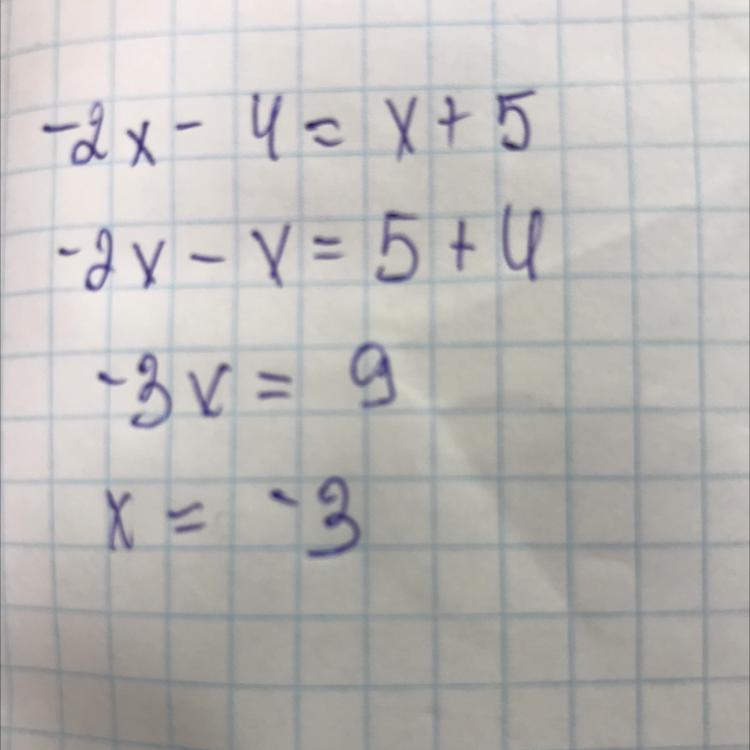 -2x - 4 = x + 5
-2x - x = 5 + 4
-3x = 9
x = -3